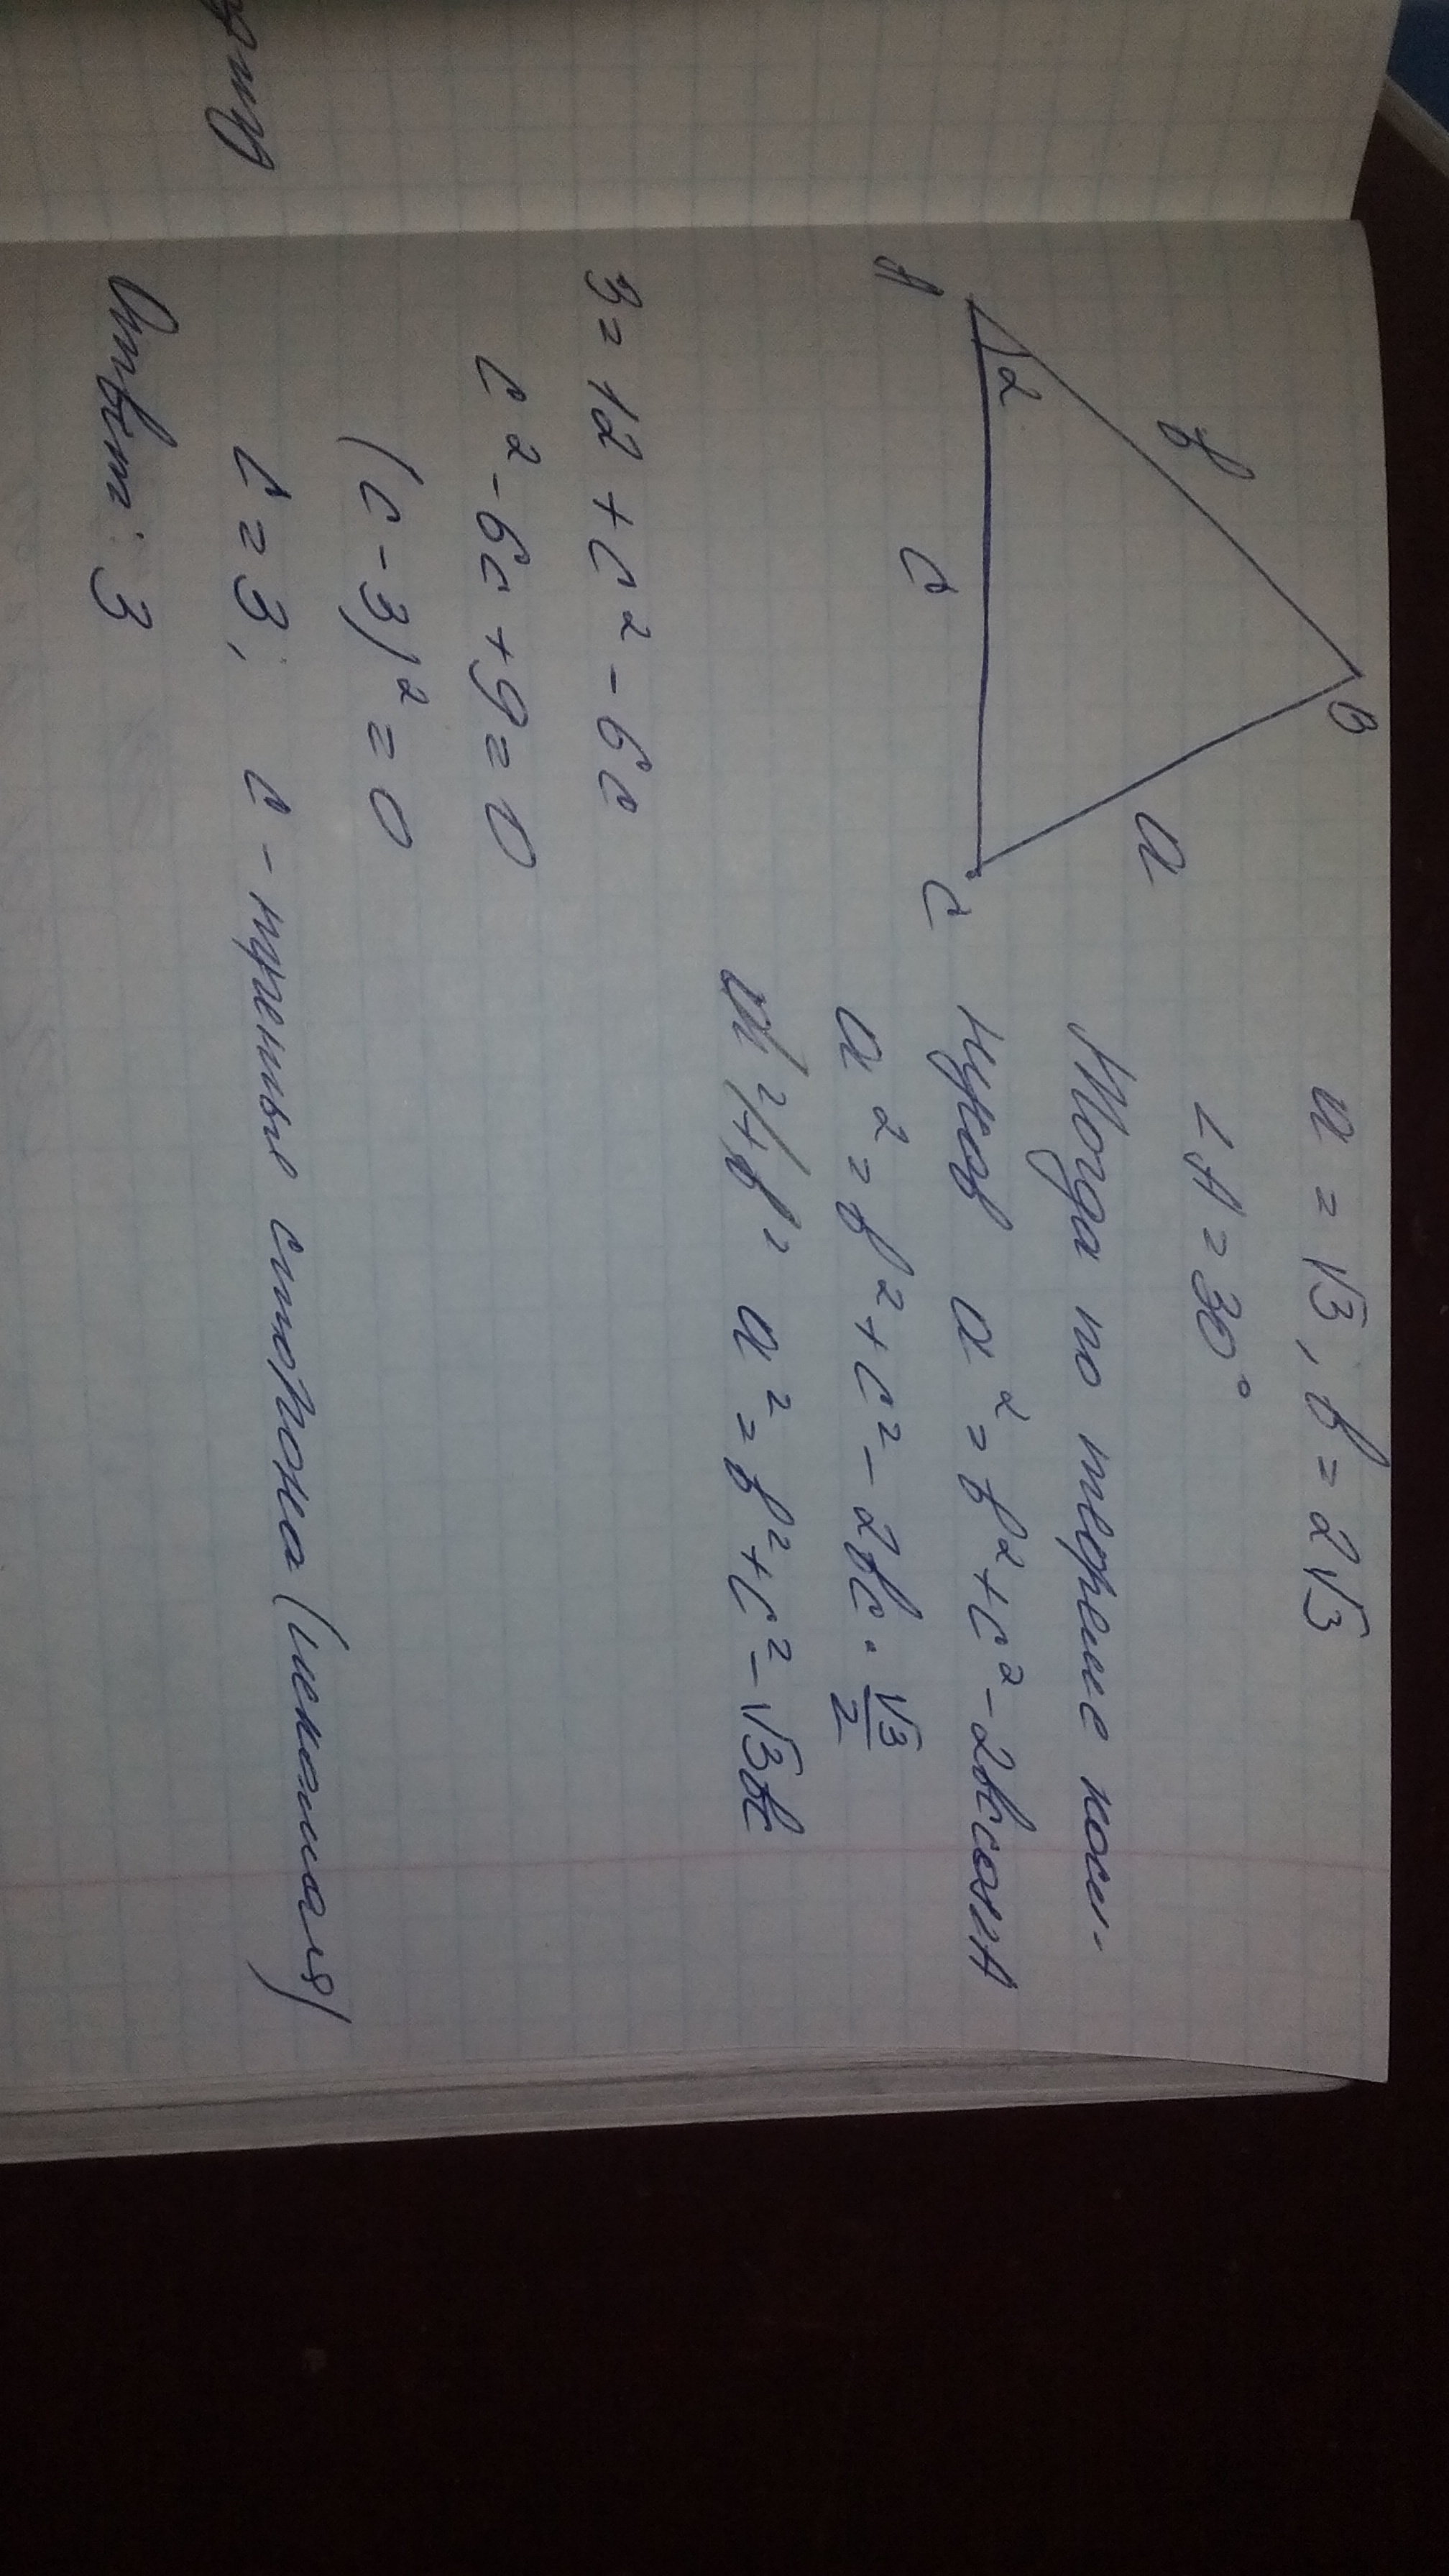 a = √3, b = 2√3
∠A = 30°
Тогда по теореме коси-
нусов a² = b² + c² - 2bc cos A
a² = b² + c² - 2bc · √3/2
a² = b² + c² - √3bc
B
b
a
A
α
c
C
3 = 12 + c² - 6c
c² - 6c + 9 = 0
(c - 3)² = 0
c = 3; c - третья сторона (искомая)
Ответ: 3